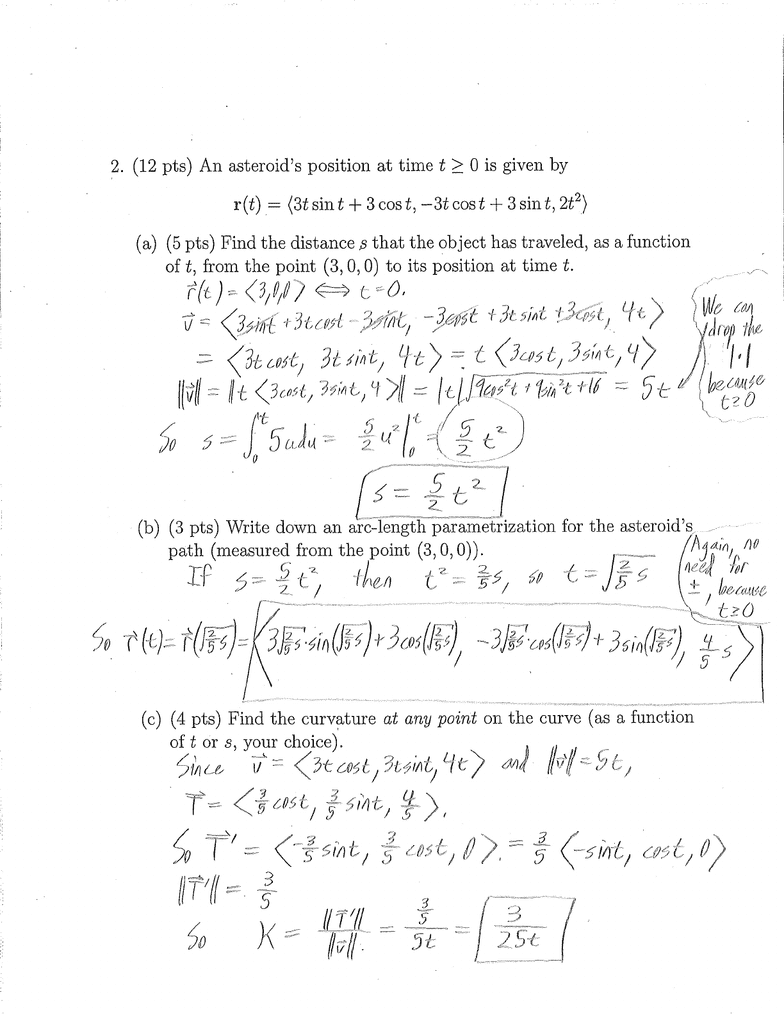 2. (12 pts) An asteroid's position at time t ≥ 0 is given by
r(t) = ⟨3t sin t + 3 cos t, −3t cos t + 3 sin t, 2t²⟩
(a) (5 pts) Find the distance s that the object has traveled, as a function
of t, from the point (3, 0, 0) to its position at time t.
r⃗(t) = ⟨3,0,0⟩ ⟺ t=0.
v⃗ = ⟨3sint + 3tcost − 3sint, −3cost + 3tsint + 3cost, 4t⟩
= ⟨3tcost, 3tsint, 4t⟩ = t⟨3cost, 3sint, 4⟩
‖v⃗‖ = ‖t⟨3cost, 3sint, 4⟩‖ = |t|√(9cos²t + 9sin²t + 16) = 5t
We can
drop the
|·|
because
t≥0
So s = ∫₀ᵗ 5udu = 5/2 u²|₀ᵗ = 5/2 t²
s = 5/2 t²
(b) (3 pts) Write down an arc-length parametrization for the asteroid's
path (measured from the point (3, 0, 0)).
If s = 5/2 t², then t² = 2/5 s, so t = √(2/5 s)
Again, no
need for
±, because
t≥0
So r⃗(t) = r⃗(√(2/5 s)) = ⟨3√(2/5 s)·sin(√(2/5 s)) + 3cos(√(2/5 s)), −3√(2/5 s)·cos(√(2/5 s)) + 3sin(√(2/5 s)), 4/5 s⟩
(c) (4 pts) Find the curvature at any point on the curve (as a function
of t or s, your choice).
Since v⃗ = ⟨3tcost, 3tsint, 4t⟩ and ‖v⃗‖ = 5t,
T⃗ = ⟨3/5 cost, 3/5 sint, 4/5⟩.
So T⃗' = ⟨−3/5 sint, 3/5 cost, 0⟩. = 3/5 ⟨−sint, cost, 0⟩
‖T⃗'‖ = 3/5
So K = ‖T⃗'‖/‖v⃗‖. = (3/5)/5t = 3/25t